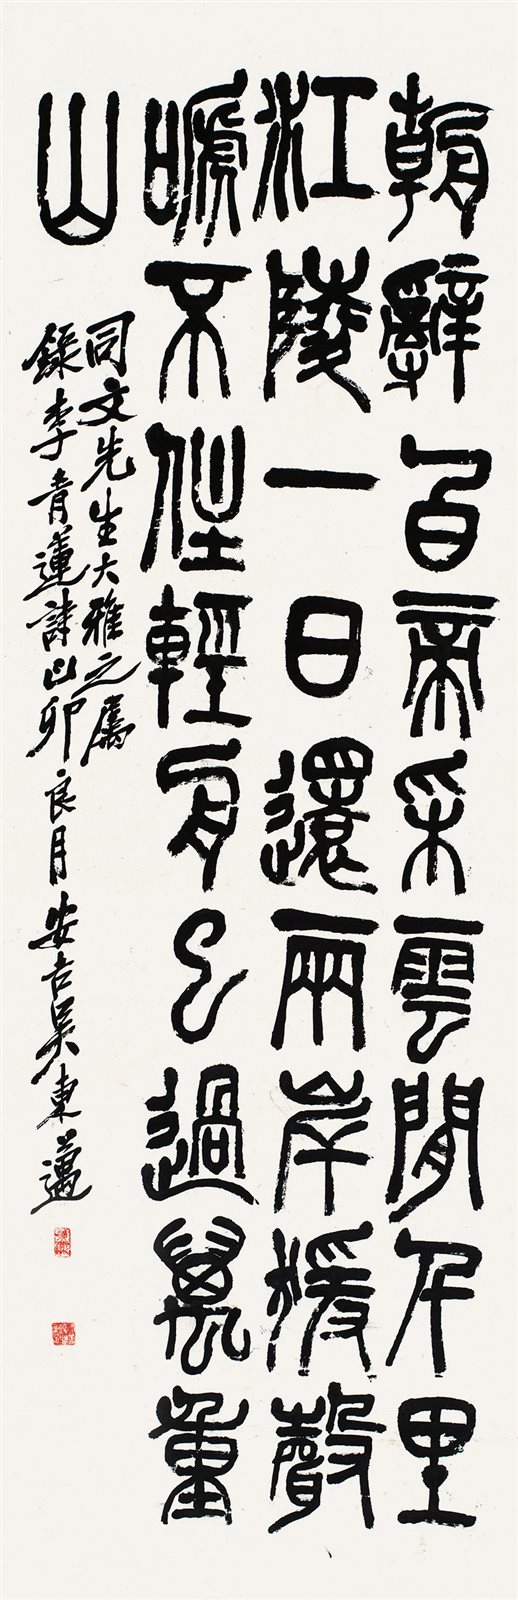 朝辭白帝采雲閒千里
江陵一日還兩岸猨聲
嗁不住輕舟已過萬重
山
同文先生大雅之屬
錄李青蓮詩己卯良月安吉吳東邁